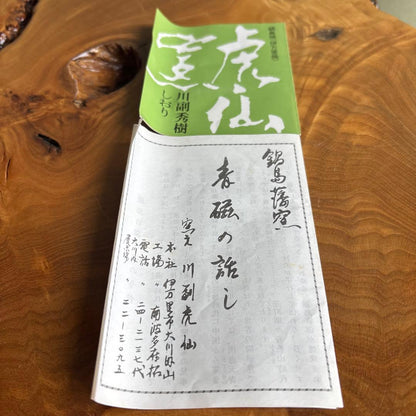 虎仙
窯
川副秀樹
しおり
鍋島藩窯
青磁の話し
窯元 川副虎仙
本社 伊万里市大川内山
工場 〃 南波多古拓
電話 〃 二四-二一三七代
大川内
展示場 〃 二二-三〇九五